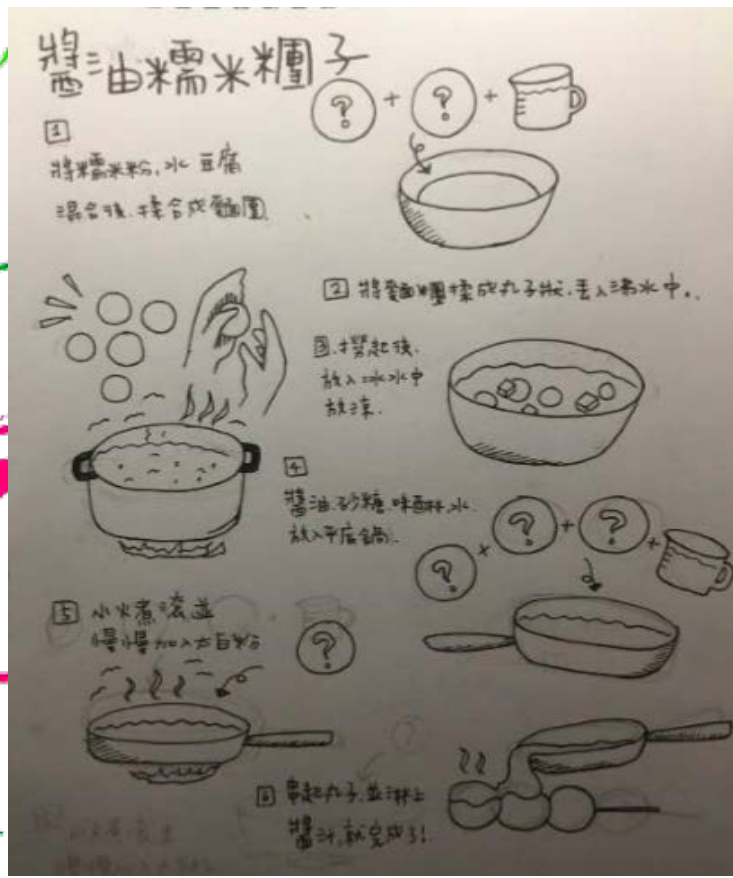 醬油糯米糰子
?
+
?
+
1
將糯米粉,水 豆腐
混合後,揉合成麵團
2 將麵糰揉成丸子狀,丟入沸水中。
3.撈起後,
放入冰水中
放涼.
4
醬油.砂糖.味醂,水.
放入平底鍋.
? × ? + ? +
5 小火煮滾並
慢慢加入太白粉
?
6 串起丸子,並淋上
醬汁,就完成了!